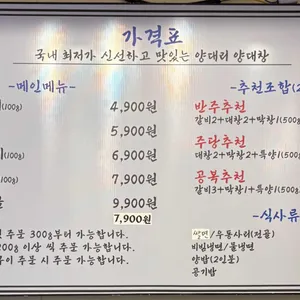 가격표
국내 최저가 신선하고 맛있는 양대리 양대창
-메인메뉴-
-추천조합(2
(100g) 4,900원
5,900원
(100g) 6,900원
7,900원
9,900원
7,900원
반주추천
갈비2+대창2+막창1(500g
주당추천
대창2+막창2+특양1(500g
공복추천
갈비3+막창1+특양1(500g
-식사류
쫄면/우동사리(전골)
비빔냉면/물냉면
양밥(2인분)
공기밥
주문 300g부터 가능합니다.
200g 이상 씩 주문 가능합니다.
이 주문 시 주문 가능합니다.